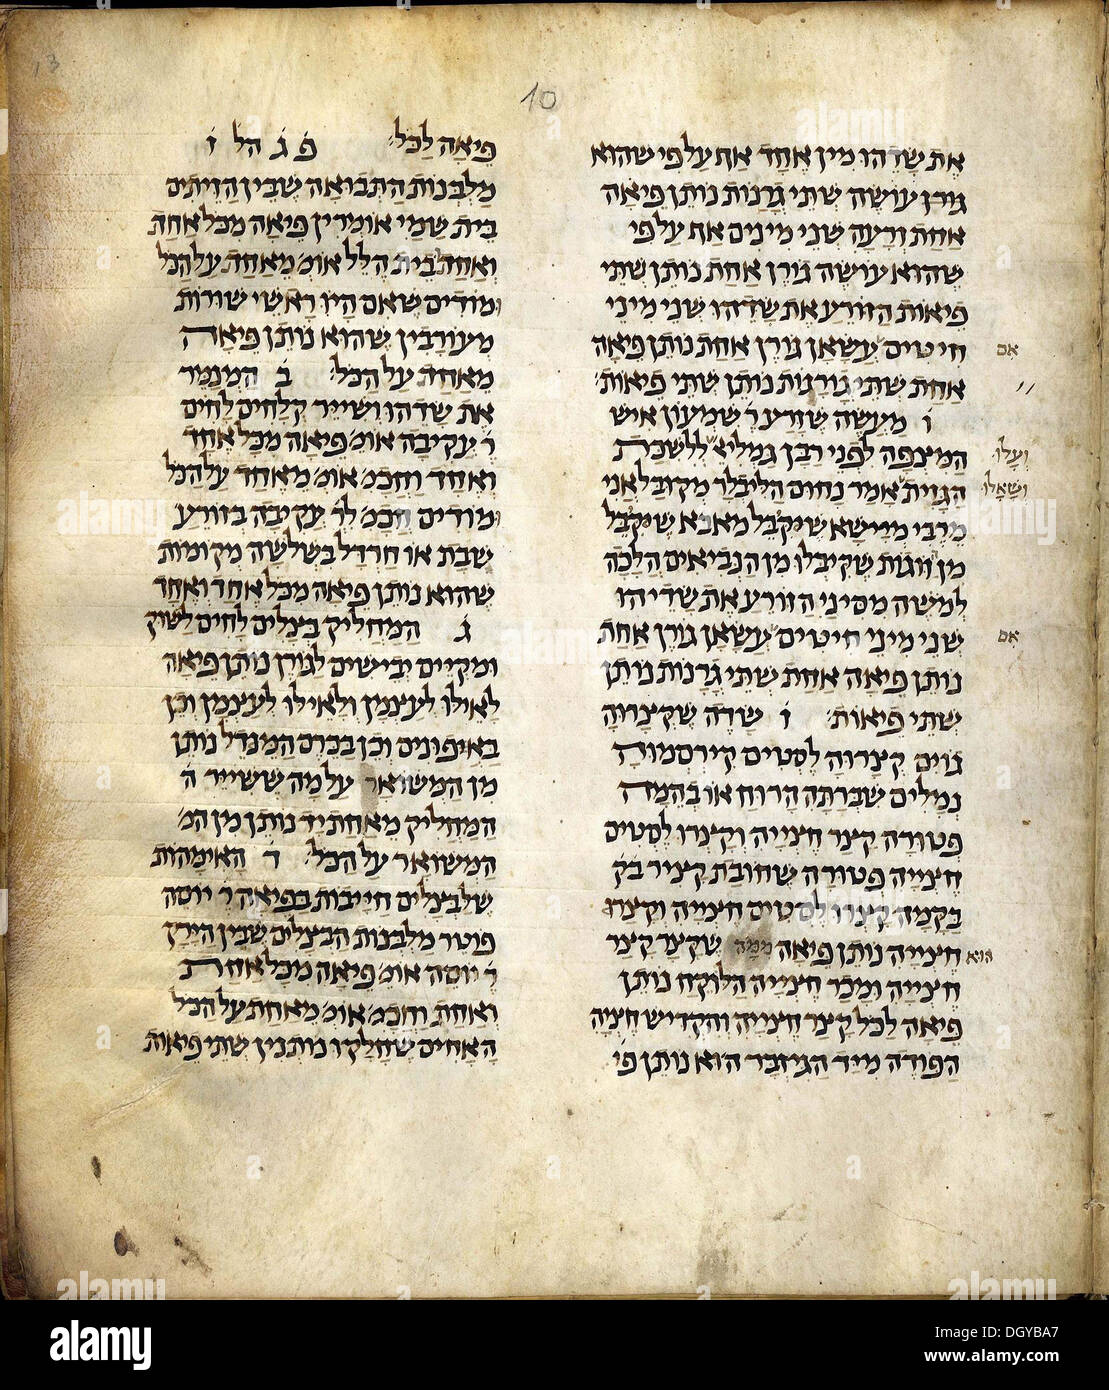 10
13
את שדהו מין אחד אף על פי שהוא
גורן עושה שתי גרנות נותן פיאה
אחת זרעה שני מינים אף על פי
שהוא עושה גורן אחת נותן שתי
פיאות הזורע את שדהו שני מיני
חיטים עשאן גורן אחת נותן פיאה
אם
אחת שתי גורנות נותן שתי פיאות׳
ו מעשה שזרע ר׳ שמעון איש
המצפה לפני רבן גמליא׳ ללשכת
ועלו
הגזית אמר נחום הליבלר מקובל אני
ושאלו
מרבי מיישא שקיבל מאבא שקיבל
מן זוגות שקיבלו מן הנביאים הלכה
למשה מסיני הזורע את שדיהו
שני מיני חיטים עשאן גורן אחת
אם
נותן פיאה אחת שתי גרנות נותן
שתי פיאות׳ ז שדה שקצרוה
גוים קצרוה לסטים קירסמוה
נמלים שברתה הרוח או בהמה
פטורה קצר חצייה וקצרו לסטים
חצייה פטורה שחובת קציר בק
בקמה קצרו לסטים חצייה וקצר
חצייה נותן פיאה ממה שקצר קצר
הוא
חצייה ומכר חצייה הלוקח נותן
פיאה לכל קצר חצייה והקדיש חציה
הפודה מיד הגיזבר הוא נותן פי
פיאה לכל׳ פ ג הל ו
מלבנות התבואה שבין הזיתים
בית שמי אומרין פיאה מכל אחת
ואחת בית הלל אומ׳ מאחת על הכל
ומודים שאם היו ראשי שורות
מעורבין שהוא נותן פיאה
מאחת על הכל׳ ב המנמר
את שדהו ושייר קלחים לחים
ר׳ עקיבה אומ׳ פיאה מכל אחד
ואחד וחכמ׳ אומ׳ מאחד על הכל
ומודים חכמ׳ לר׳ עקיבה בזורע
שבת או חרדל בשלשה מקומות
שהוא נותן פיאה מכל אחד ואחד
ג המחליק בצלים לחים לשוק
ומקיים יבישים לגורן נותן פיאה
לאילו לעצמן ולאילו לעצמן וכן
באיפונים וכן בכרם המידל נותן
מן המשואר על מה ששייר ה
המחליק מאחת יד נותן מן המ׳
המשואר על הכל׳ ד האימהות
שלבצלים חייבות בפיאה ר׳ יוסה
פוטר מלבנות הבצלים שבין הירק
ר׳ יוסה אומ׳ פיאה מכל אחת
ואחת וחכמ׳ אומ׳ מאחת על הכל
האחים שחלקו נותנין שתי פיאות
alamy
DGYBA7
www.alamy.com